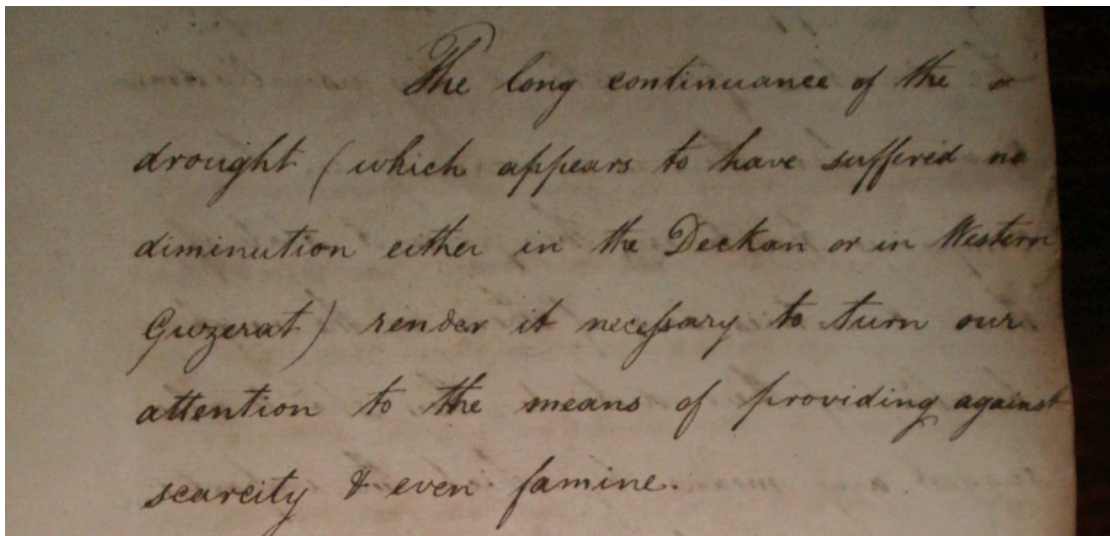 The long continuance of the
drought (which appears to have suffered no
diminution either in the Deckan or in Western
Guzerat) render it necessary to turn our
attention to the means of providing against
scarcity & even famine.